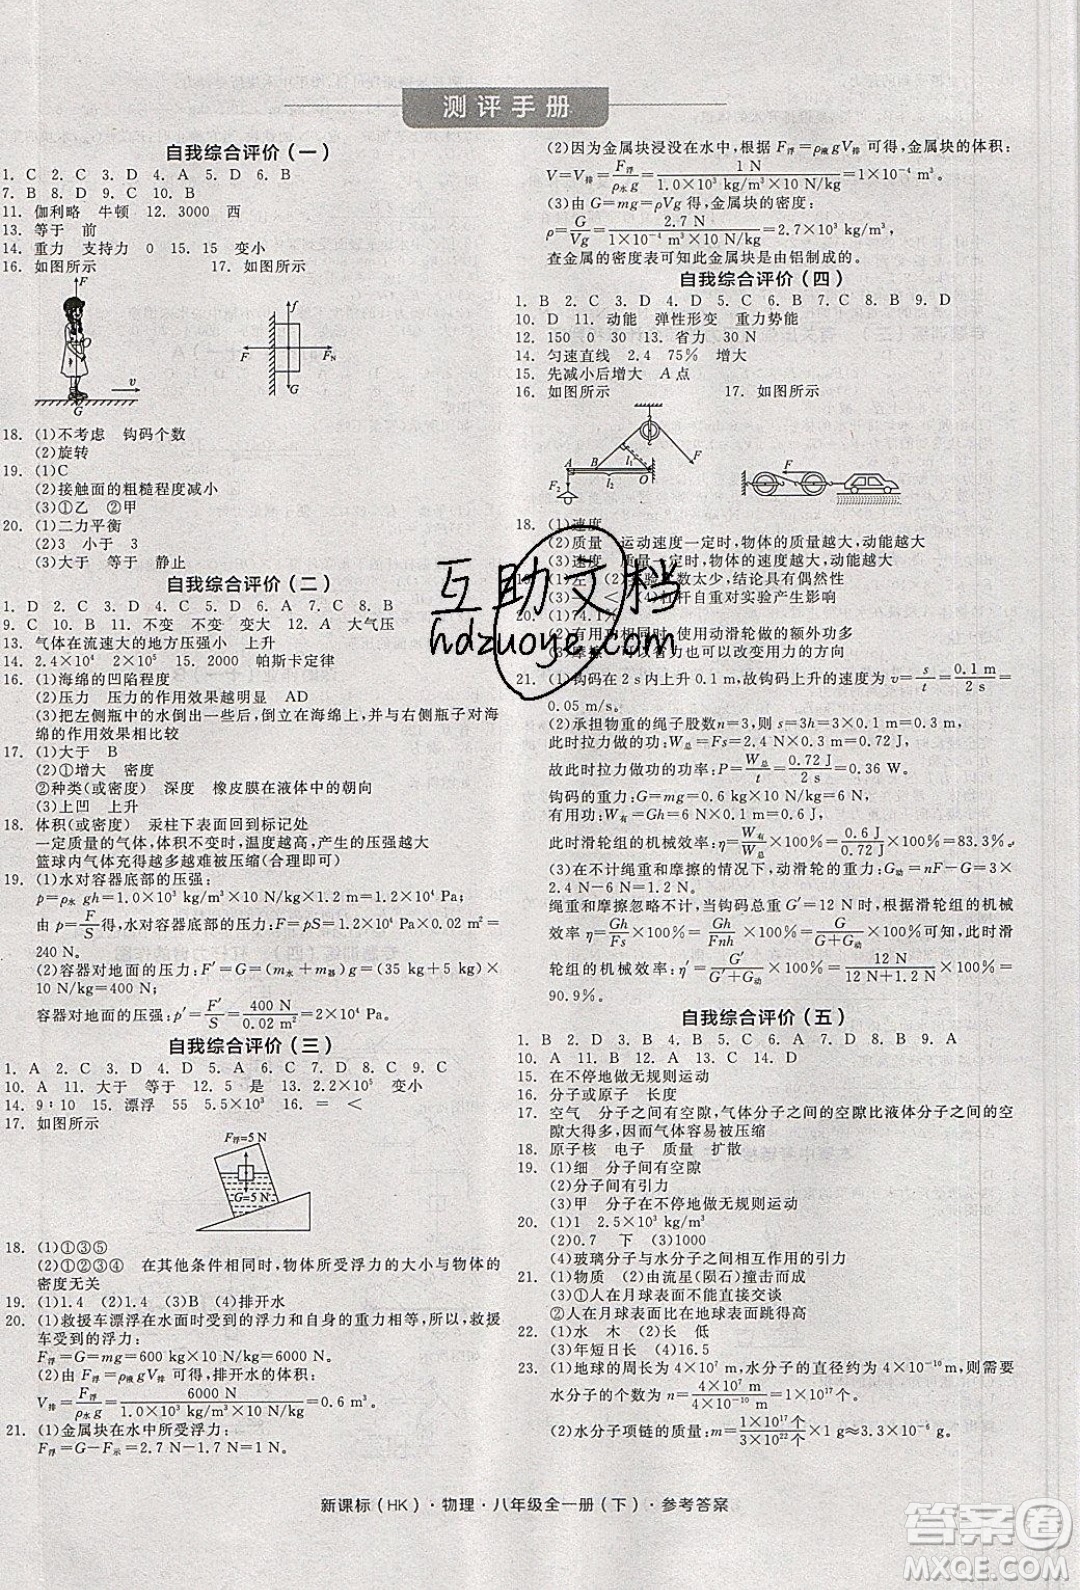 测评手册
自我综合评价(一)
1. C 2. C 3. D 4. A 5. D 6. B
7. B 8. B 9. C 10. B
11. 伽利略 牛顿 12. 3000 西
13. 等于 前
14. 重力 支持力 0 15. 15 变小
16. 如图所示 17. 如图所示
F
v
G
f
F
F_N
G
18. (1)不考虑 钩码个数
(2)旋转
19. (1)C
(2)接触面的粗糙程度减小
(3)①乙 ②甲
20. (1)二力平衡
(2)3 小于 3
(3)大于 等于 静止
自我综合评价(二)
1. D 2. D 3. D 4. C 5. D 6. A 7. D 8. B
9. C 10. B 11. 不变 不变 变大 12. A 大气压
13. 气体在流速大的地方压强小 上升
14. 2.4×10⁴ 2×10³ 15. 2000 帕斯卡定律
16. (1)海绵的凹陷程度
(2)压力 压力的作用效果越明显 AD
(3)把左侧瓶中的水倒出一些后,倒立在海绵上,并与右侧瓶子对海
绵的作用效果相比较
17. (1)大于 B
(2)①增大 密度
②种类(或密度) 深度 橡皮膜在液体中的朝向
(3)上凹 上升
18. 体积(或密度) 汞柱下表面回到标记处
一定质量的气体,体积不变时,温度越高,产生的压强越大
篮球内气体充得越多越难被压缩(合理即可)
19. (1)水对容器底部的压强:
p=ρ水 gh=1.0×10³ kg/m³×10 N/kg×1.2 m=1.2×10⁴ Pa
由 p=F/S得,水对容器底部的压力:F=pS=1.2×10⁴ Pa×0.02 m²=
240 N。
(2)容器对地面的压力:F′=G=(m水+m器)g=(35 kg+5 kg)×
10 N/kg=400 N,
容器对地面的压强:p′=F′/S=400 N/0.02 m²=2×10⁴ Pa。
自我综合评价(三)
1. A 2. C 3. D 4. D 5. A 6. C 7. D 8. D 9. C
10. A 11. 大于 等于 12. 5 是 13. 2.2×10⁵ 变小
14. 9∶10 15. 漂浮 55 5.5×10³ 16. = <
17. 如图所示
F浮=5 N
G=5 N
18. (1)①③⑤
(2)①②③④ 在其他条件相同时,物体所受浮力的大小与物体的
密度无关
19. (1)1.4 (2)1.4 (3)B (4)排开水
20. (1)救援车漂浮在水面时受到的浮力和自身的重力相等,救援
车受到的浮力:
F浮=G=mg=600 kg×10 N/kg=6000 N。
(2)由 F浮=ρ水gV排 可得,排开水的体积:
V排=F浮/ρ水g=6000 N/1.0×10³ kg/m³×10 N/kg=0.6 m³。
21. (1)金属块在水中所受浮力:
F浮=G-F示=2.7 N-1.7 N=1 N。
(2)因为金属块浸没在水中,根据 F浮=ρ液gV排可得,金属块的体积:
V=V排=F浮/ρ水g=1 N/1.0×10³ kg/m³×10 N/kg=1×10⁻⁴ m³。
(3)由 G=mg=ρVg 得,金属块的密度:
ρ=G/Vg=2.7 N/1×10⁻⁴ m³×10 N/kg=2.7×10³ kg/m³,
查金属的密度表可知此金属块是由铝制成的。
自我综合评价(四)
1. B 2. C 3. D 4. D 5. C 6. B 7. B 8. C 9. D
10. D 11. 动能 弹性形变 重力势能
12. 150 0 30 13. 省力 30 N
14. 匀速直线 2.4 75% 增大
15. 先减小后增大 A 点
16. 如图所示 17. 如图所示
A
B
O
l₁
l₂
F₂
F
F
18. (1)速度
(2)质量 运动速度一定时,物体的质量越大,动能越大
(3)速度 质量一定时,物体的速度越大,动能越大
19. (1)左 (2)实验次数太少,结论具有偶然性
(3)— < (4)杠杆自重对实验产生影响
20. (1)74.1%
(2)有用功相同时,使用动滑轮做的额外功多
(3)摩擦 可以省力也可以改变用力的方向
21. (1)钩码在 2 s 内上升 0.1 m,故钩码上升的速度为 v=s/t=0.1 m/2 s=
0.05 m/s。
(2)承担物重的绳子股数n=3,则 s=3h=3×0.1 m=0.3 m,
此时拉力做的功:W总=Fs=2.4 N×0.3 m=0.72 J,
故此时拉力做功的功率:P=W总/t=0.72 J/2 s=0.36 W。
钩码的重力:G=mg=0.6 kg×10 N/kg=6 N,
有用功:W有=Gh=6 N×0.1 m=0.6 J,
此时滑轮组的机械效率:η=W有/W总×100%=0.6 J/0.72 J×100%≈83.3%。
(3)在不计绳重和摩擦的情况下,动滑轮的重力:G动=nF-G=3×
2.4 N-6 N=1.2 N,
绳重和摩擦忽略不计,当钩码总重 G′=12 N 时,根据滑轮组的机械
效率 η=Gh/Fs×100%=Gh/Fnh×100%=G/G+G动×100%,此时滑
轮组的机械效率:η′=G′/G′+G动×100%=12 N/12 N+1.2 N×100%≈
90.9%。
自我综合评价(五)
1. B 2. D 3. B 4. C 5. C 6. A 7. D 8. B 9. A
10. A 11. B 12. C 13. D 14. D
15. 在不停地做无规则运动
16. 分子或原子 长度
17. 空气 分子之间有空隙,气体分子之间的空隙比液体分子的空
隙大得多,因而气体容易被压缩
18. 原子核 电子 质量 扩散
19. (1)细 分子间有空隙
(2)分子间有引力
(3)甲 分子在不停地做无规则运动
20. (1)1 2.5×10³ kg/m³
(2)0.7 下 (3)50
(4)玻璃分子与水分子之间相互作用的引力
21. (1)物质 (2)由流星(陨石)撞击而成
(3)①人在月球表面无法直接交谈
②人在月球表面比在地球表面跳得高
22. (1)水 木 (2)长 低
(3)年 短日长 (4)16.5
23. (1)地球的周长为 4×10⁷ m,水分子的直径约为 4×10⁻¹⁰ m,则需要
水分子的个数为 n=4×10⁷ m/4×10⁻¹⁰ m=1×10¹⁷。
(2)水分子项链的质量:m=1×10¹⁷个/3×10²²个/g≈3.3×10⁻⁶ g。
互助文档
hdzuoye.com
新课标(HK)·物理·八年级全一册(下)·参考答案
答案圈
MXQE.COM